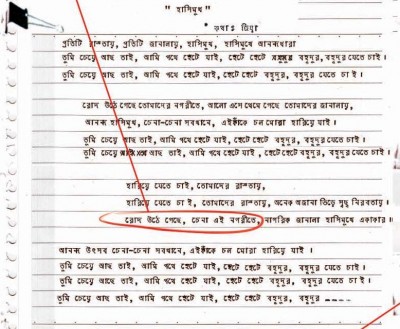 " হাসিমুখ "
* কথাঃ জিয়া
প্রতিটি রাস্তায়, প্রতিটি জানালায়, হাসিমুখ, হাসিমুখে আনন্দধারা
তুমি চেয়ে আছ তাই, আমি পথে হেটে যাই, হেটে হেটে বহুদূর, বহুদূর যেতে চাই।
তুমি চেয়ে আছ তাই, আমি পথে হেটে যাই, হেটে হেটে বহুদূর, বহুদূর যেতে চাই।
রোদ উঠে গেছে তোমাদের নগরীতে, আলো এসে থেমে গেছে তোমাদের জানালায়,
আনন্দ হাসিমুখ, চেনা-চেনা সবখানে, এইফাঁকে চল মোরা হারিয়ে যাই।
তুমি চেয়ে আছ তাই, আমি পথে হেটে যাই, হেটে হেটে বহুদূর, বহুদূর যেতে চাই।
তুমি চেয়ে আছ তাই, আমি পথে হেটে যাই, হেটে হেটে বহুদূর, বহুদূর যেতে চাই।
হারিয়ে যেতে চাই, তোমাদের রাস্তায়,
হারিয়ে যেতে চাই, তোমাদের রাস্তায়, অনেক অজানা ভিড়ে মুছু নিরবতায়,
রোদ উঠে গেছে, চেনা এই নগরীতে, নাগরিক জানালা হাসিমুখে একাকার॥
আনন্দ উৎসব চেনা-চেনা সবখানে, এইফাঁকে চল মোরা হারিয়ে যাই।
তুমি চেয়ে আছ তাই, আমি পথে হেটে যাই, হেটে হেটে বহুদূর, বহুদূর যেতে চাই।
তুমি চেয়ে আছ তাই, আমি পথে হেটে যাই, হেটে হেটে বহুদূর, বহুদূর যেতে চাই।
তুমি চেয়ে আছ তাই, আমি পথে হেটে যাই, হেটে হেটে বহুদূর, বহুদূর ----